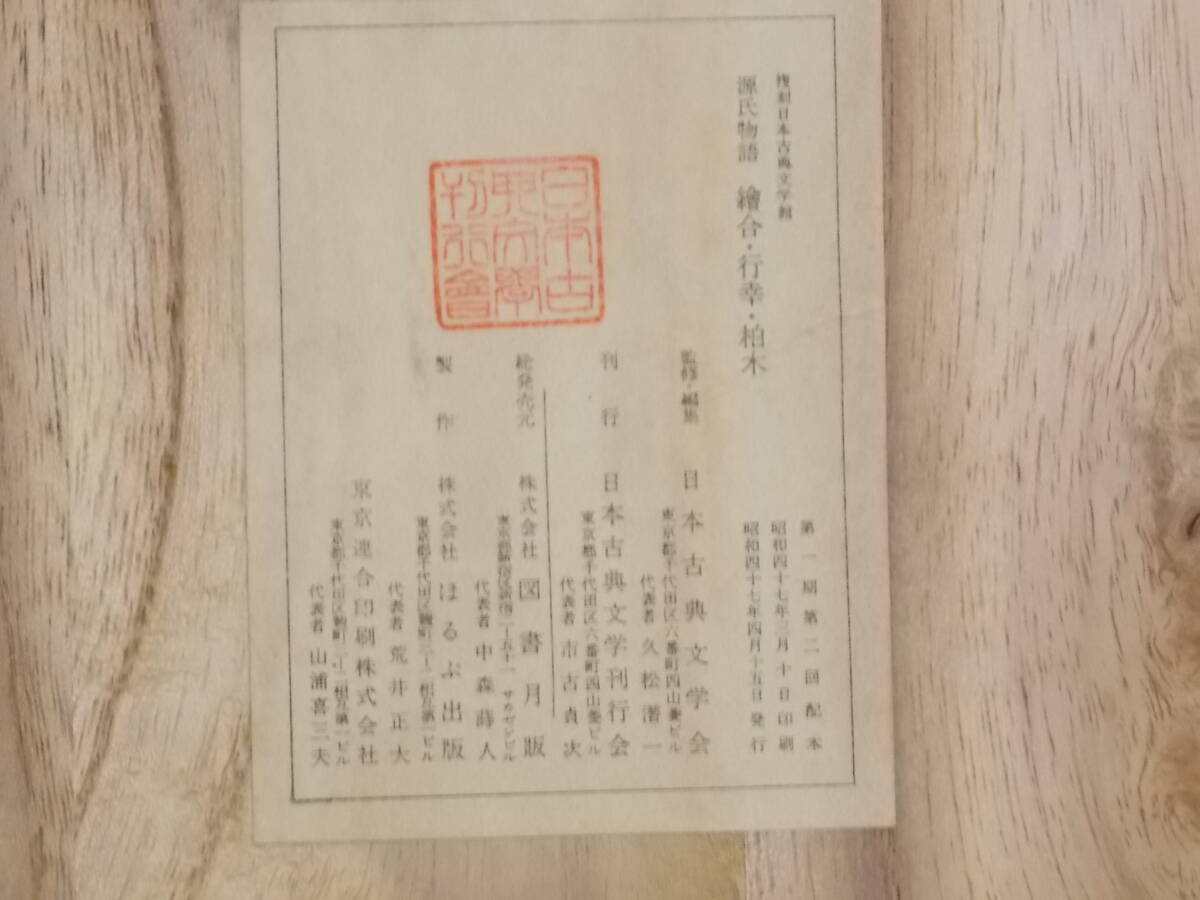 復刻日本古典文学館
源氏物語 繪合・行幸・柏木
第一期第二回配本
昭和四十七年三月十日印刷
昭和四十七年四月十五日発行
監修・編集 日本古典文学会
東京都千代田区六番町四山菱ビル
代表者 久松潜一
刊行 日本古典文学刊行会
東京都千代田区六番町四山菱ビル
代表者 市古貞次
総発売元 株式会社 図書月販
東京都新宿区新宿 サカゼンビル
代表者 中森蒔人
製作 株式会社 ほるぷ出版
東京都千代田区麹町三ー二相互第一ビル
代表者 荒井正大
東京連合印刷株式会社
東京都千代田区麹町三ー二相互第一ビル
代表者 山浦喜三夫
日本古
典文學
刊行會